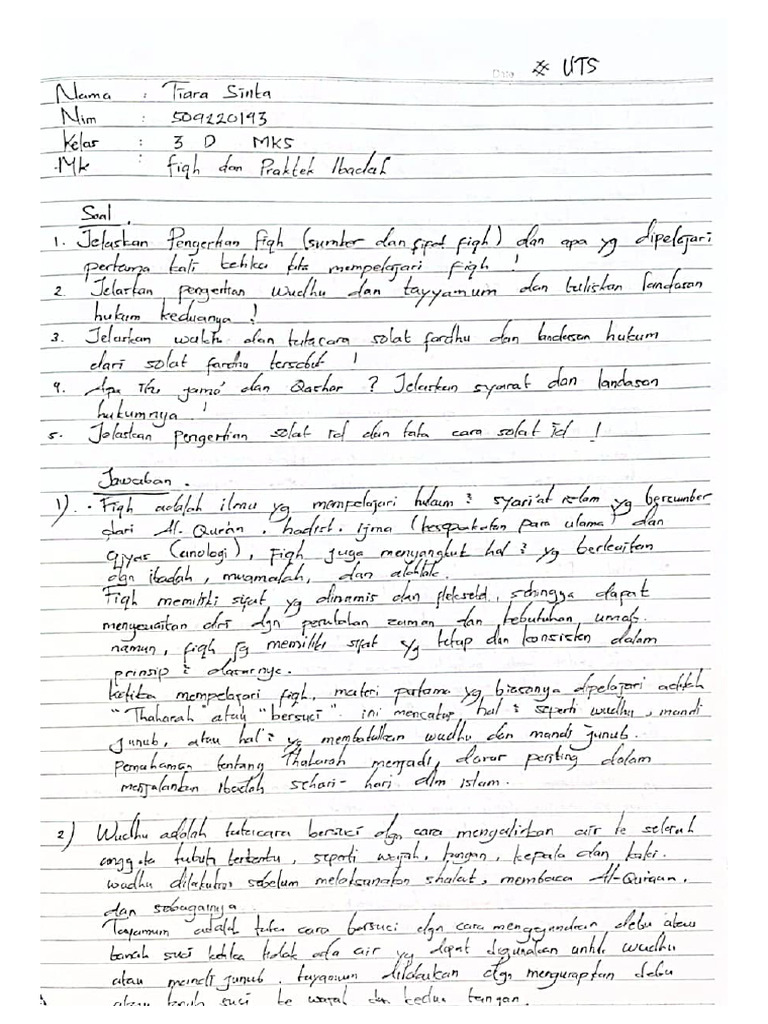 Date # UTS
Nama : Tiara Sinta
Nim : 509220193
Kelas : 3 D MKS
Mk : fiqh dan Praktek Ibadah
Soal.
1. Jelaskan Pengertian Fiqh (sumber dan sifat fiqh) dan apa yg dipelajari
pertama kali ketika kita mempelajari fiqh !
2. Jelaskan pengertian wudhu dan tayyamum dan tuliskan landasan
hukum keduanya !
3. Jelaskan waktu dan tatacara solat fardhu dan landasan hukum
dari solat fardhu tersebut !
4. Apa itu jama' dan Qashar ? Jelaskan syarat dan landasan
hukumnya !
5. Jelaskan pengertian solat id dan tata cara solat id !
Jawaban.
1). • Fiqh adalah ilmu yg mempelajari hukum² syari'at islam yg bersumber
dari Al-Qur'an, hadist, ijma (kesepakatan para ulama) dan
qiyas (anologi), Fiqh juga menyangkut hal² yg berkaitan
dgn ibadah, muamalah, dan akhlak.
Fiqh memiliki sifat yg dinamis dan fleksebel, sehingga dapat
menyesuaikan diri dgn perubahan zaman dan kebutuhan umat.
namun, fiqh jg memiliki sifat yg tetap dan konsisten dalam
prinsip² dasarnya.
ketika mempelajari fiqh, materi pertama yg biasanya dipelajari adalah
"Thaharah" atau "bersuci". ini mencakup hal² seperti wudhu, mandi
junub, atau hal² yg membatalkan wudhu dan mandi junub.
Pemahaman tentang Thaharah menjadi dasar penting dalam
menjalankan Ibadah sehari-hari dlm islam.
2) Wudhu adalah tatacara bersuci dgn cara mengalirkan air ke seluruh
anggota tubuh tertentu, seperti wajah, tangan, kepala dan kaki.
wudhu dilakukan sebelum melaksanakan shalat, membaca Al-Qur'an,
dan sebagainya.
Tayamum adalah tata cara bersuci dgn cara menggunakan debu atau
tanah suci ketika tidak ada air yg dapat digunakan untk wudhu
atau mandi junub. tayamum dilakukan dgn mengusapkan debu
atau tanah suci ke wajah dan kedua tangan.